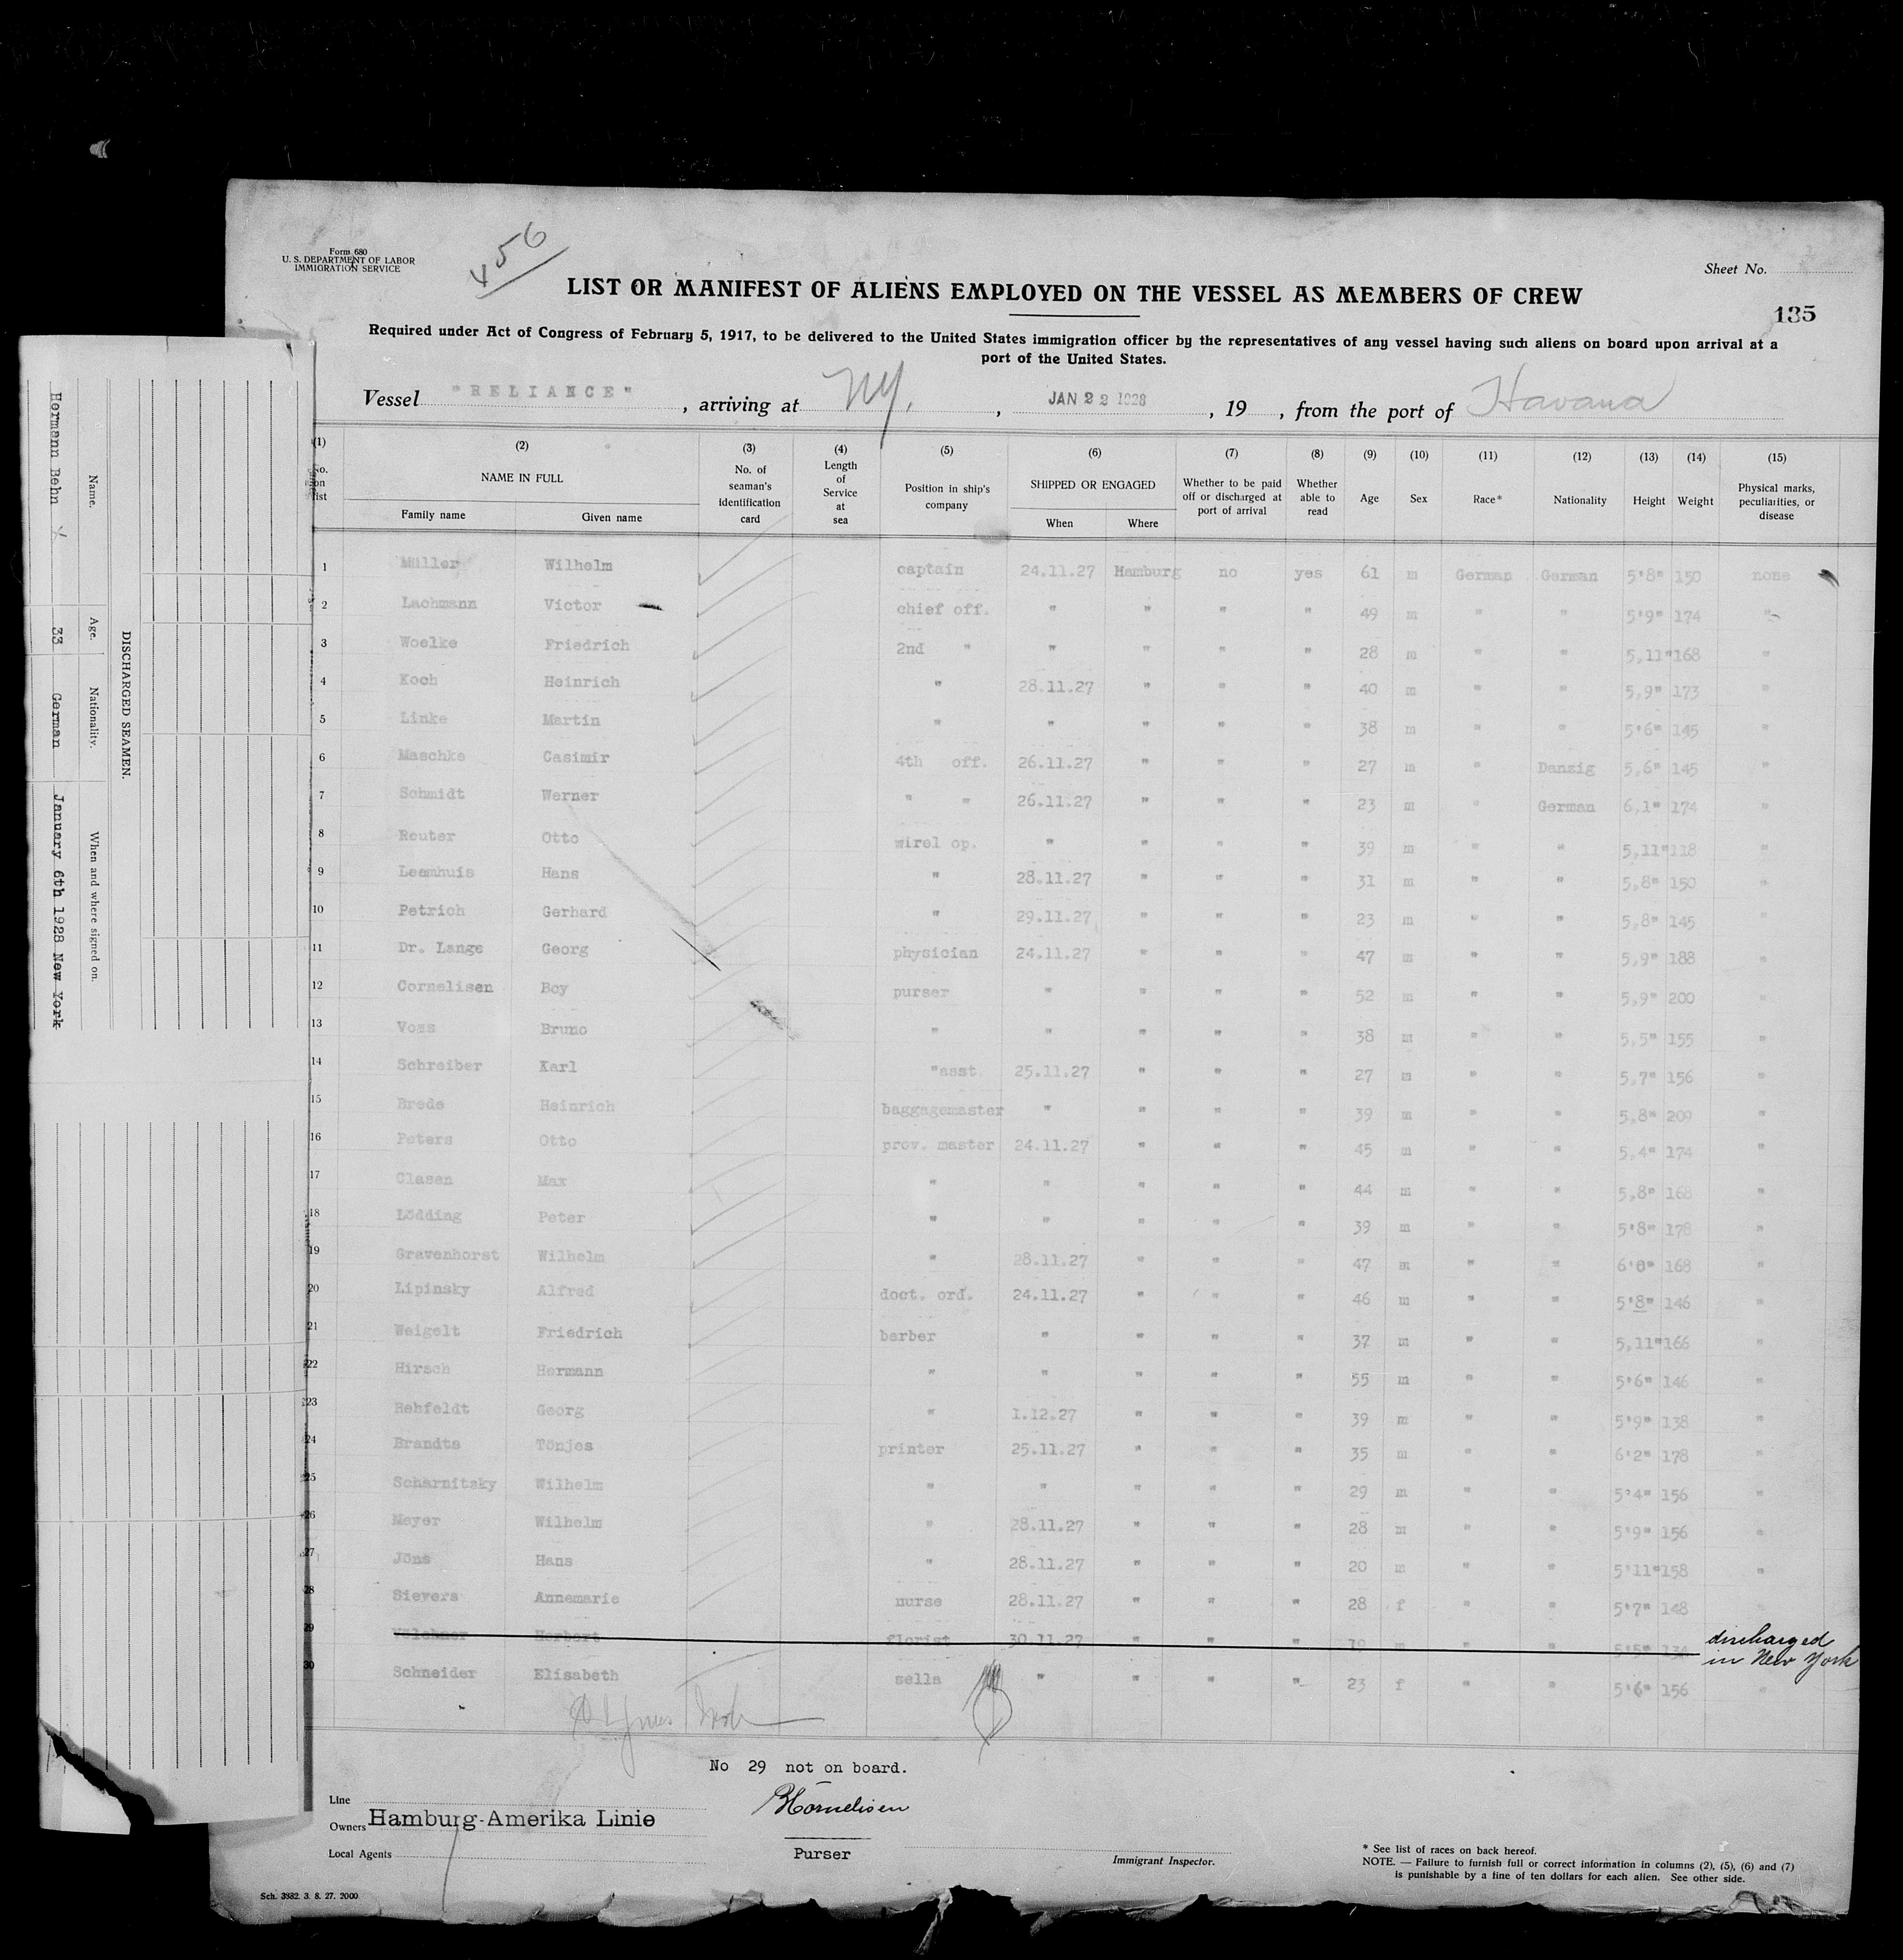 Form 680
U. S. DEPARTMENT OF LABOR
IMMIGRATION SERVICE
456
Sheet No.
135
LIST OR MANIFEST OF ALIENS EMPLOYED ON THE VESSEL AS MEMBERS OF CREW
Required under Act of Congress of February 5, 1917, to be delivered to the United States immigration officer by the representatives of any vessel having such aliens on board upon arrival at a
port of the United States.
Vessel "RELIANCE", arriving at NY., JAN 22 1928, 19 , from the port of Havana
(1) (2) (3) (4) (5) (6) (7) (8) (9) (10) (11) (12) (13) (14) (15)
No. on list NAME IN FULL Family name Given name No. of seaman's identification card Length of Service at sea Position in ship's company SHIPPED OR ENGAGED When Where Whether to be paid off or discharged at port of arrival Whether able to read Age Sex Race* Nationality Height Weight Physical marks, peculiarities, or disease
1 Müller Wilhelm captain 24.11.27 Hamburg no yes 61 m German German 5'8" 150 none
2 Lachmann Victor chief off. " " " " 49 m " " 5'9" 174 "
3 Woelke Friedrich 2nd " " " " " 28 m " " 5,11" 168 "
4 Koch Heinrich " 28.11.27 " " " 40 m " " 5,9" 173 "
5 Linke Martin " " " " " 38 m " " 5'6" 145 "
6 Maschke Casimir 4th off. 26.11.27 " " " 27 m " Danzig 5,6" 145 "
7 Schmidt Werner " " 26.11.27 " " " 23 m " German 6,1" 174 "
8 Reuter Otto wirel op. " " " " 39 m " " 5,11" 118 "
9 Leemhuis Hans " 28.11.27 " " " 31 m " " 5,8" 150 "
10 Petrich Gerhard " 29.11.27 " " " 23 m " " 5,8" 145 "
11 Dr. Lange Georg physician 24.11.27 " " " 47 m " " 5,9" 188 "
12 Cornelisen Boy purser " " " " 52 m " " 5,9" 200 "
13 Voss Bruno " " " " " 38 m " " 5,5" 155 "
14 Schreiber Karl "asst. 25.11.27 " " " 27 m " " 5,7" 156 "
15 Brede Heinrich baggagemaster " " " " 39 m " " 5,8" 200 "
16 Peters Otto prov. master 24.11.27 " " " 45 m " " 5,4" 174 "
17 Clasen Max " " " " " 44 m " " 5,8" 168 "
18 Lödding Peter " " " " " 39 m " " 5'8" 178 "
19 Gravenhorst Wilhelm " 28.11.27 " " " 47 m " " 6'0" 168 "
20 Lipinsky Alfred doct. ord. 24.11.27 " " " 46 m " " 5'8" 146 "
21 Weigelt Friedrich barber " " " " 37 m " " 5,11" 166 "
22 Hirsch Hermann " " " " " 55 m " " 5'6" 146 "
23 Rehfeldt Georg " 1.12.27 " " " 39 m " " 5'9" 138 "
24 Brandts Tönjes printer 25.11.27 " " " 35 m " " 6'2" 178 "
25 Scharnitzky Wilhelm " " " " " 29 m " " 5'4" 156 "
26 Meyer Wilhelm " 28.11.27 " " " 28 m " " 5'9" 156 "
27 Jöns Hans " 28.11.27 " " " 20 m " " 5'11" 158 "
28 Sievers Annemarie nurse 28.11.27 " " " 28 f " " 5'7" 148 "
29 Herbert florist 30.11.27 " " " 19 m " " 5'5" 134 discharged in New York
30 Schneider Elisabeth sells " " " " 23 f " " 5'6" 156 "
No 29 not on board.
Line
Owners Hamburg-Amerika Linie
Local Agents
BCornelisen
Purser
Immigrant Inspector.
* See list of races on back hereof.
NOTE. — Failure to furnish full or correct information in columns (2), (5), (6) and (7)
is punishable by a fine of ten dollars for each alien. See other side.
Sch. 3882. 3. 8. 27. 2000
DISCHARGED SEAMEN.
Name. Age. Nationality. When and where signed on.
Hermann Behn X 33 German January 6th 1928 New York